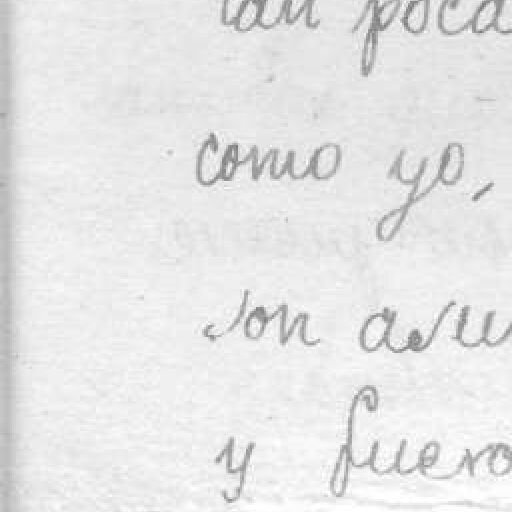 tan poca
como yo,
son asu
y fuero